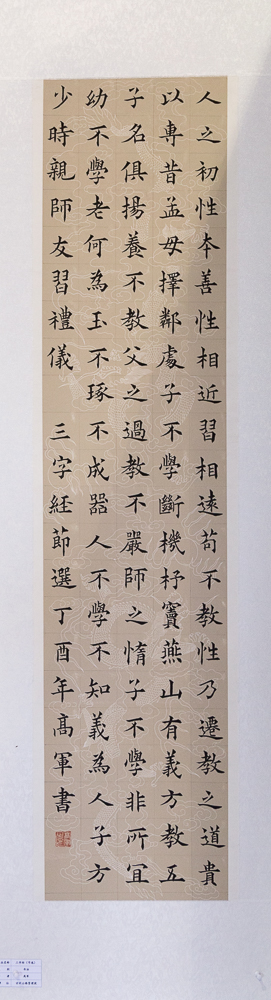 人之初性本善性相近習相遠苟不教性乃遷教之道貴
以專昔孟母擇鄰處子不學斷機杼竇燕山有義方教五
子名俱揚養不教父之過教不嚴師之惰子不學非所宜
幼不學老何為玉不琢不成器人不學不知義為人子方
少時親師友習禮儀 三字經節選丁酉年高軍書